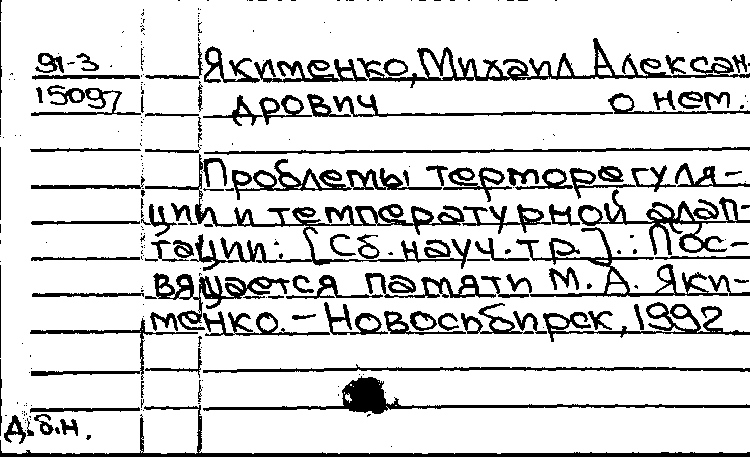 91-3 Якименко, Михаил Алексан-
15097 дрович о нем.
Проблемы терморегуля-
ции и температурной адап-
тации: [Сб. науч. тр.].: Пос-
вящается памяти М. А. Яки-
менко. – Новосибирск, 1992
Д.б.н.